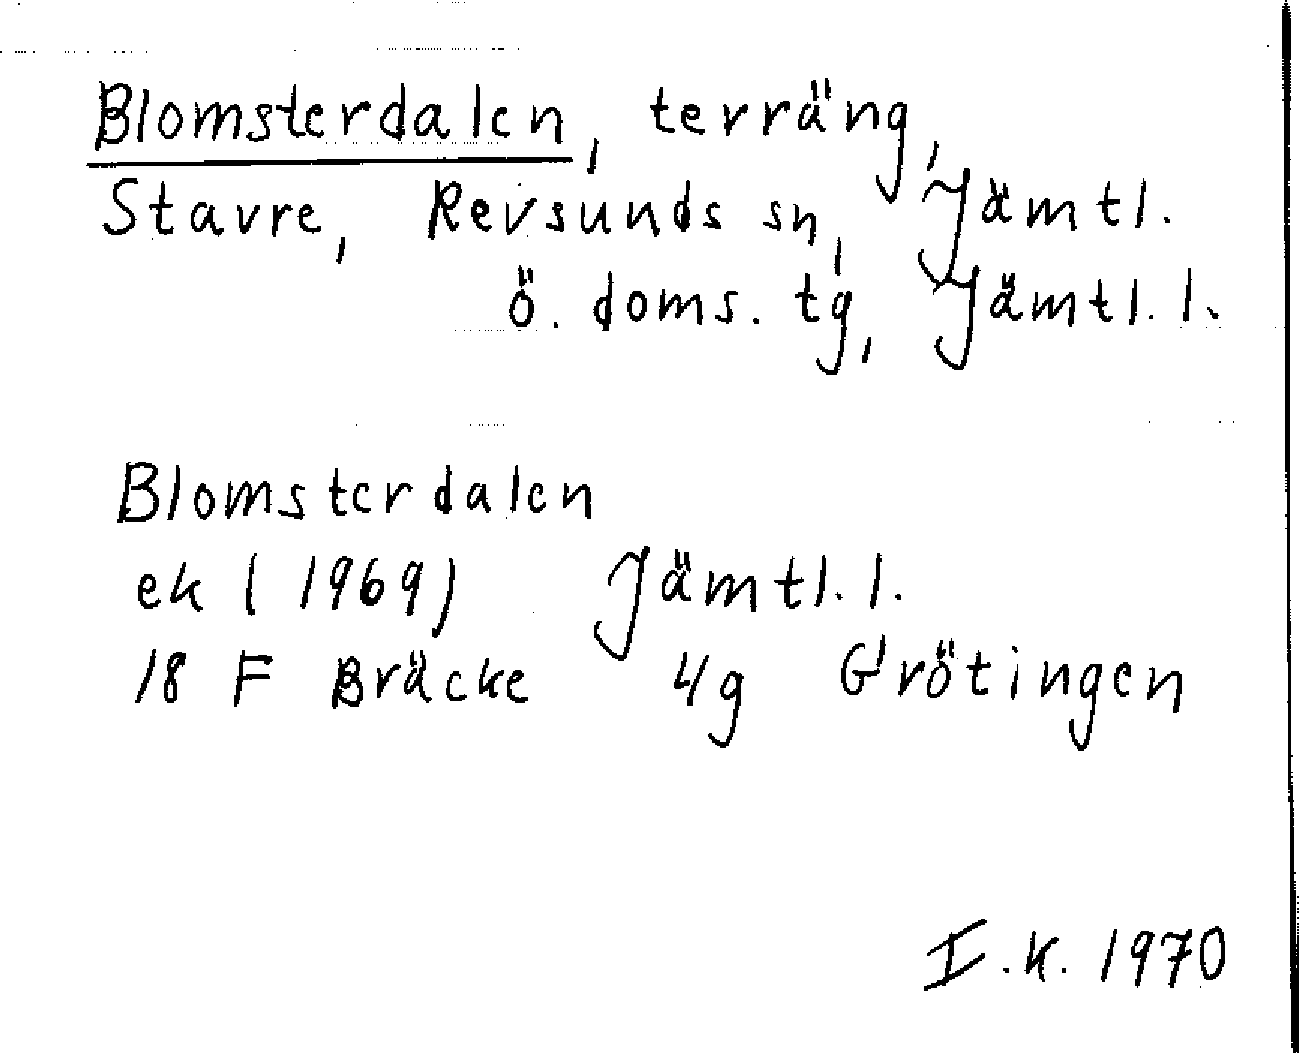 Blomsterdalen, terräng,
Stavre, Revsunds sn, Jämtl.
ö. doms. tg, Jämtl. l.
Blomsterdalen
ek (1969) Jämtl. l.
18 F Bräcke 4g Grötingen
I.K. 1970